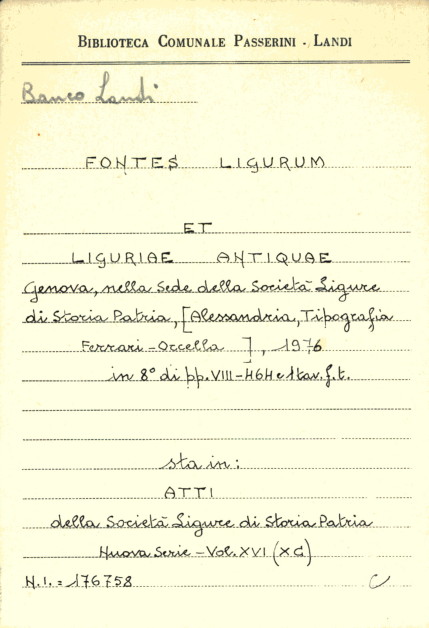 BIBLIOTECA COMUNALE PASSERINI - LANDI
Banco Landi
FONTES LIGURUM
ET
LIGURIAE ANTIQUAE
Genova, nella Sede della Società Ligure
di Storia Patria, [Alessandria, Tipografia
Ferrari-Occella], 1976
in 8° di pp. VIII-464 e 1 tav. f. t.
sta in:
ATTI
della Società Ligure di Storia Patria
Nuova Serie - Vol. XVI (XC)
N.I. = 176758
C